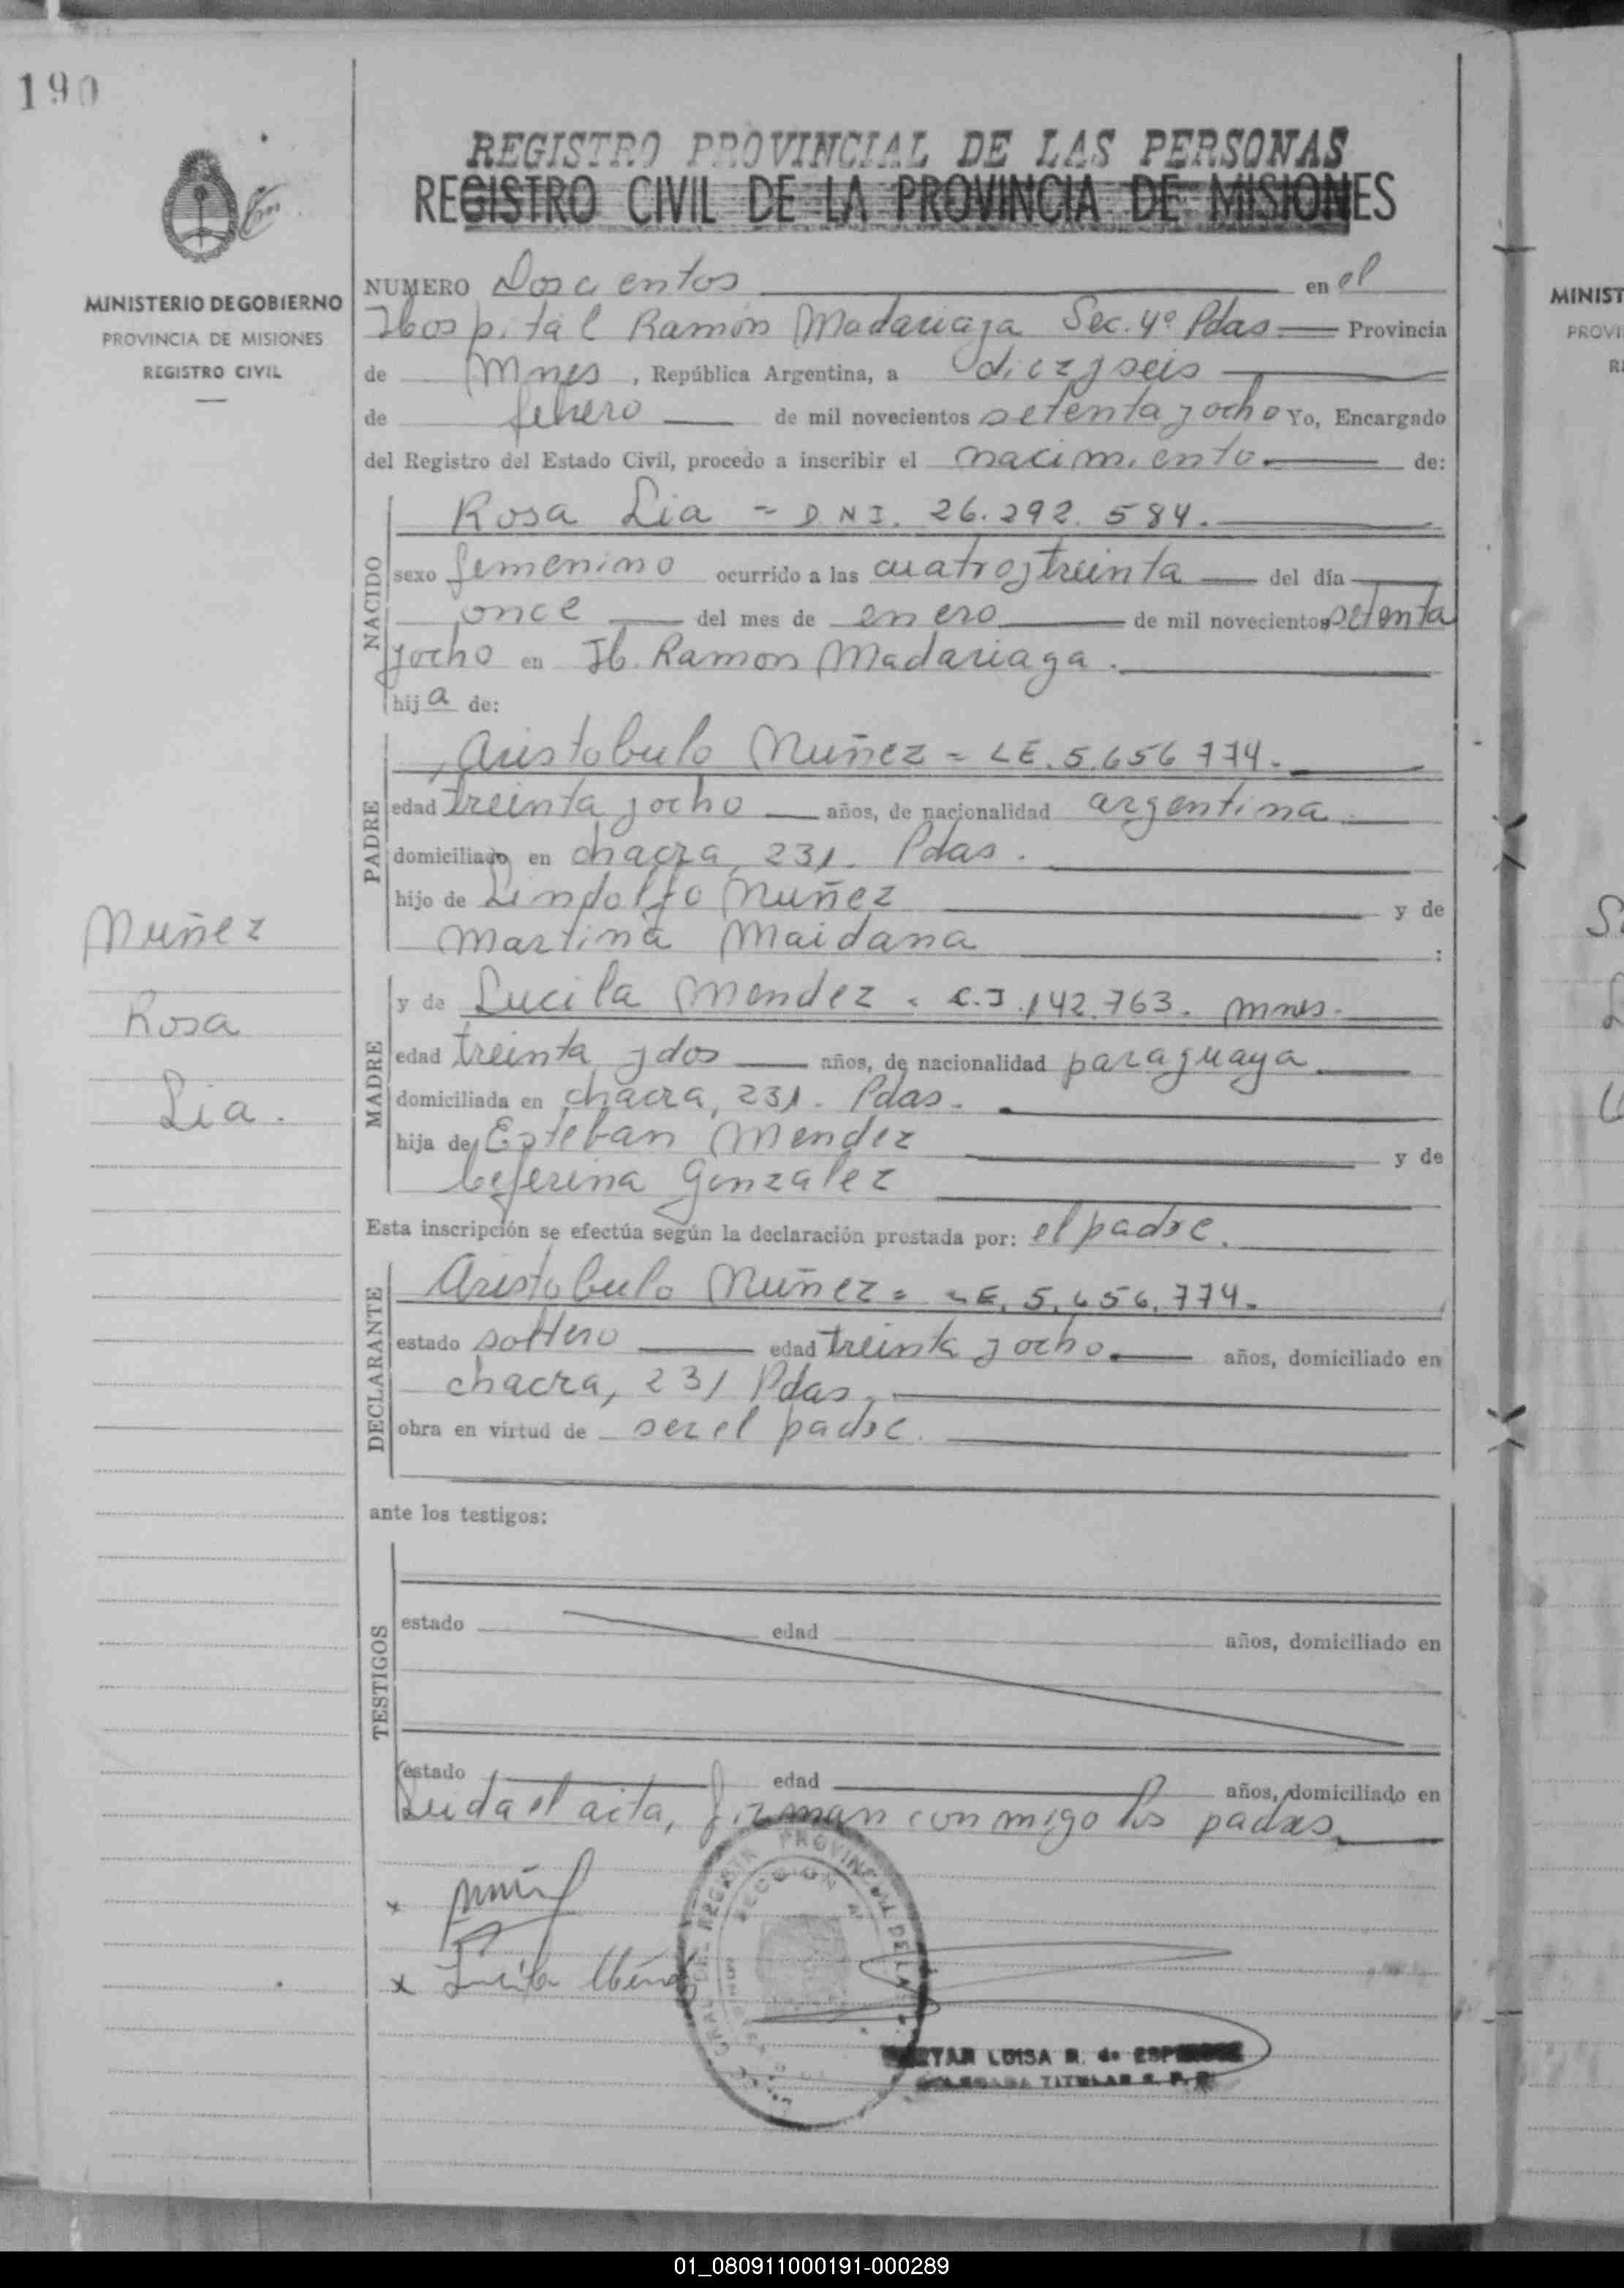 190
REGISTRO PROVINCIAL DE LAS PERSONAS
REGISTRO CIVIL DE LA PROVINCIA DE MISIONES
MINISTERIO DE GOBIERNO
PROVINCIA DE MISIONES
REGISTRO CIVIL
NUMERO Doscientos en el
Hospital Ramón Madariaga Sec. 4º Pdas. Provincia
de Mnes, República Argentina, a diez y seis
de febrero de mil novecientos setenta y ocho Yo, Encargado
del Registro del Estado Civil, procedo a inscribir el nacimiento de:
NACIDO
Rosa Lia = DNI. 26.292.584.
sexo femenino ocurrido a las cuatro y treinta del día
once del mes de enero de mil novecientos setenta
y ocho en H. Ramon Madariaga.
hija de:
PADRE
Aristobulo Nuñez = LE. 5.656.774.
edad treinta y ocho años, de nacionalidad argentina
domiciliado en chacra, 231. Pdas.
hijo de Lindolfo Nuñez y de
Martina Maidana :
MADRE
y de Lucila Mendez = C.I. 142.763. Mnes.
edad treinta y dos años, de nacionalidad paraguaya
domiciliada en chacra, 231. Pdas.
hija de Esteban Mendez y de
Ceferina Gonzalez
Esta inscripción se efectúa según la declaración prestada por: el padre.
DECLARANTE
Aristobulo Nuñez = LE. 5.656.774.
estado soltero edad treinta y ocho años, domiciliado en
chacra, 231 Pdas.
obra en virtud de ser el padre.
ante los testigos:
TESTIGOS
estado edad años, domiciliado en
estado edad años, domiciliado en
Leida el acta, firman conmigo los padres
Nuñez
Rosa
Lia.
x
x Lucila
LUISA R. de
TITULAR R. P. P.
MINIST
PROVI
01_080911000191-000289